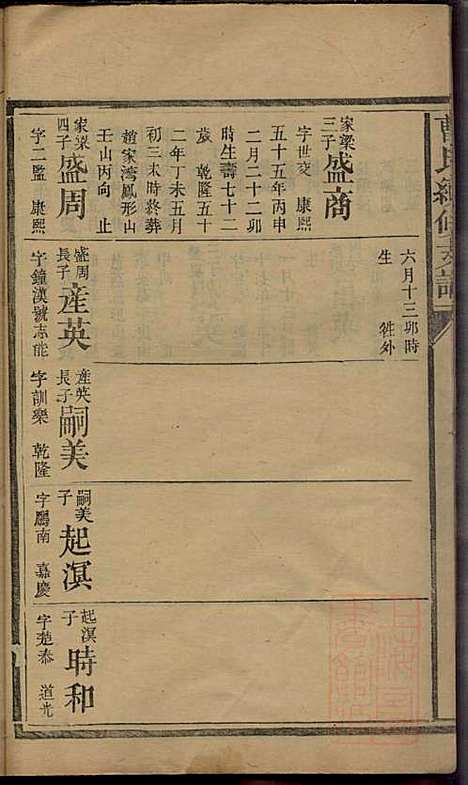 曹氏續修支譜
家梁三子盛商
字世交 康熙
五十五年丙申
二月二十二卯
時生壽七十二
歲 乾隆五十
二年丁未五月
初三未時終葬
趙家湾鳳形山
壬山丙向 止
家梁四子盛周
字二監 康熙
六月十三卯時
生 牲外
盛周長子產英
字鐘漢號志能
產英長子嗣美
字訓樂 乾隆
嗣美子起溟
字屬南 嘉慶
起溟子時和
字楚泰 道光